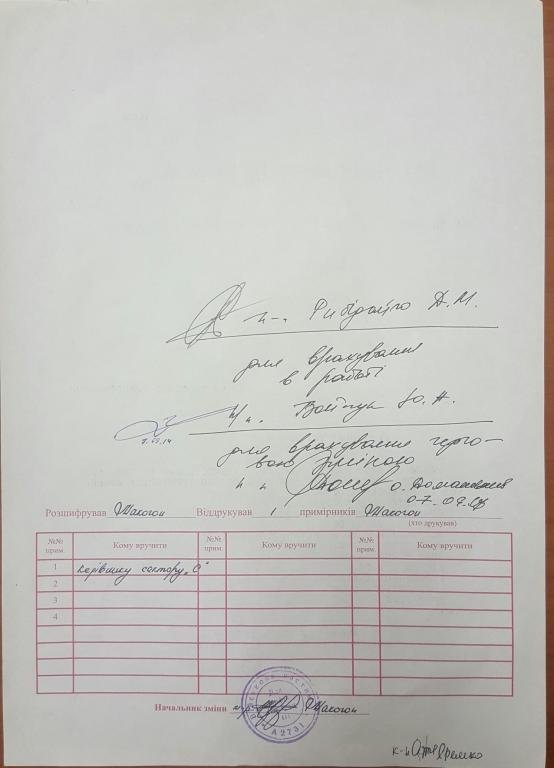 п-к Рибірайго Д.М.
для врахування
в роботі
п/п-к Войтук Ю.А.
7.09.14
для врахування черго-
вою зміною
О. Доманський
07.09.
Розшифрував Шалогон Віддрукував 1 примірників Шалогон
(хто друкував)
№№ прим. Кому вручити №№ прим Кому вручити №№ прим. Кому вручити
1 Керівнику сектору „С“
2
3
4
Начальник зміни Шалогон
А2731